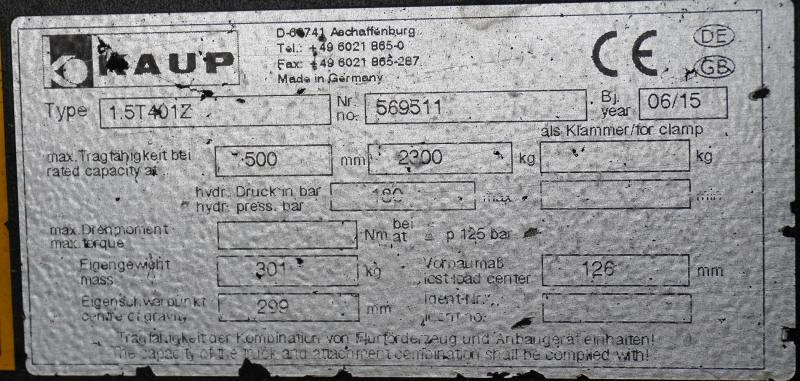 KAUP
D-63741 Aschaffenburg
Tel.: +49 6021 865-0
Fax: +49 6021 865-287
Made in Germany
CE
DE
GB
Type 1.5T401Z
Nr. no. 569511
Bj. year 06/15
als Klammer/for clamp
max. Tragfähigkeit bei
rated capacity at 500 mm 2300 kg kg
hydr. Druck in bar
hydr. press. bar 180 max. min.
max. Drehmoment
max. torque Nm bei at p 125 bar
Eigengewicht
mass 301 kg
Vorbaumaß
lost load center 126 mm
Eigenschwerpunkt
centre of gravity 299 mm
Ident-Nr.
Tragfähigkeit der Kombination von Flurförderzeug und Anbaugerät einhalten!
The capacity of the truck and attachment combination shall be complied with!